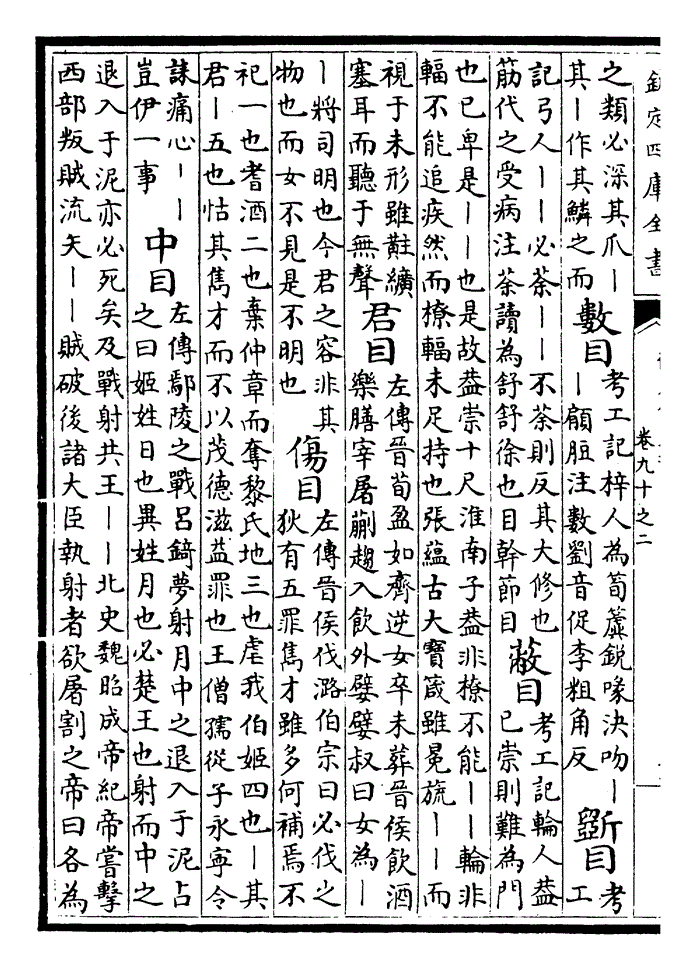 欽定四庫全書
卷九十之二
之類必深其爪丨
其丨作其鱗之而
數目
考工記梓人為筍虡鋭喙決吻丨
丨顅脰注數劉音促李粗角反
斵目
考
工
記弓人丨丨必荼丨丨不荼則反其大修也
筋代之受病注荼讀為舒舒徐也目幹節目
蔽目
考工記輪人葢
已崇則難為門
也已卑是丨丨也是故葢崇十尺淮南子葢非橑不能丨丨輪非
輻不能追疾然而橑輻未足持也張蘊古大寶箴雖冕旒丨丨而
視于未形雖黈纊
塞耳而聽于無聲
君目
左傳晉荀盈如齊逆女卒未葬晉侯飲酒
樂膳宰屠蒯趨入飲外嬖嬖叔曰女為丨
丨將司明也今君之容非其
物也而女不見是不明也
傷目
左傳晉侯伐潞伯宗曰必伐之
狄有五罪雋才雖多何補焉不
祀一也耆酒二也棄仲章而奪黎氏地三也虐我伯姬四也丨其
君丨五也怙其雋才而不以茂德滋益罪也王僧孺從子永寧令
誄痛心丨丨
豈伊一事
中目
左傳鄢陵之戰呂錡夢射月中之退入于泥占
之曰姬姓日也異姓月也必楚王也射而中之
退入于泥亦必死矣及戰射共王丨丨北史魏昭成帝紀帝嘗擊
西部叛賊流矢丨丨賊破後諸大臣執射者欲屠割之帝曰各為